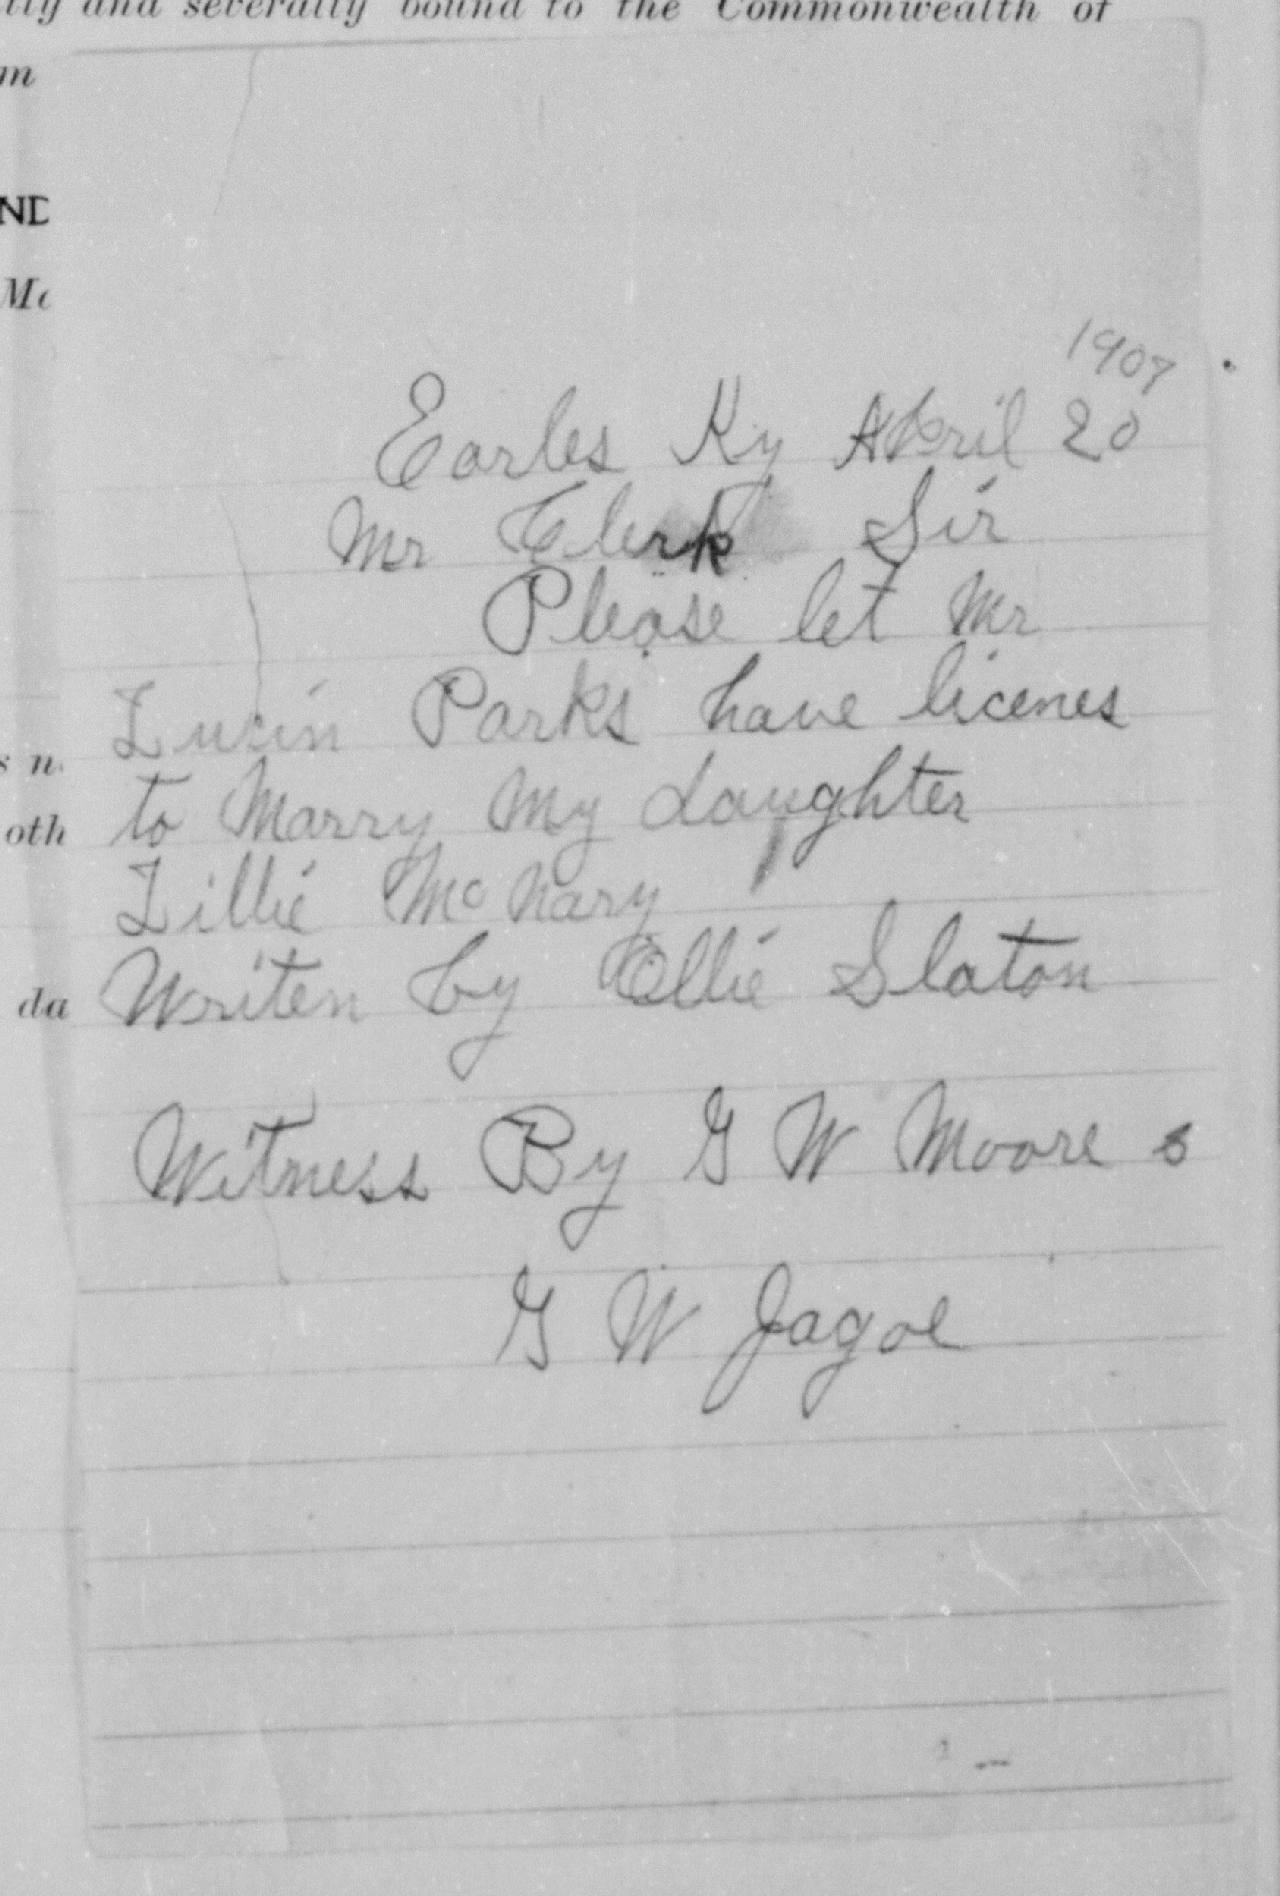 and severally bound to the Commonwealth of
1907
Earles Ky April 20
Mr Clerk Sir
Please let Mr
Lucin Parks have licenes
to Marry My daughter
Lillie McNary
Writen by Ollie Slaton
Witness By G W Moore s
G W Jagoe